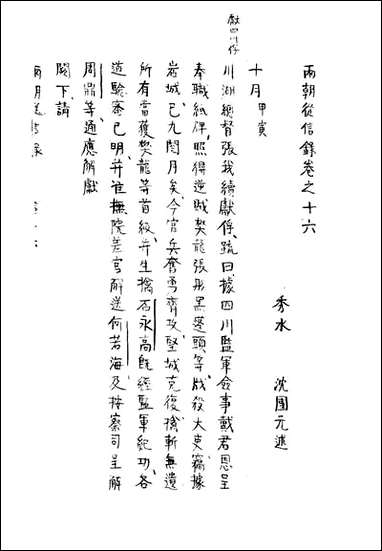 兩朝從信錄卷之十六
秀水　沈國元述
獻四川俘
十月甲寅
川湖總督張我續獻俘疏曰據四川監軍僉事戴君恩呈
奉職紙牌照得逆賊樊龍張彤黑蓬頭等戕殺大吏竊據
岩城已九閱月矣今官兵奮勇齊攻堅城克復擒斬無遺
所有當獲樊龍等首級并生擒石永高既經監軍紀功各
道驗審已明并准撫院差官解送何若海及按察司呈解
周鼎等通應解獻
闕下請